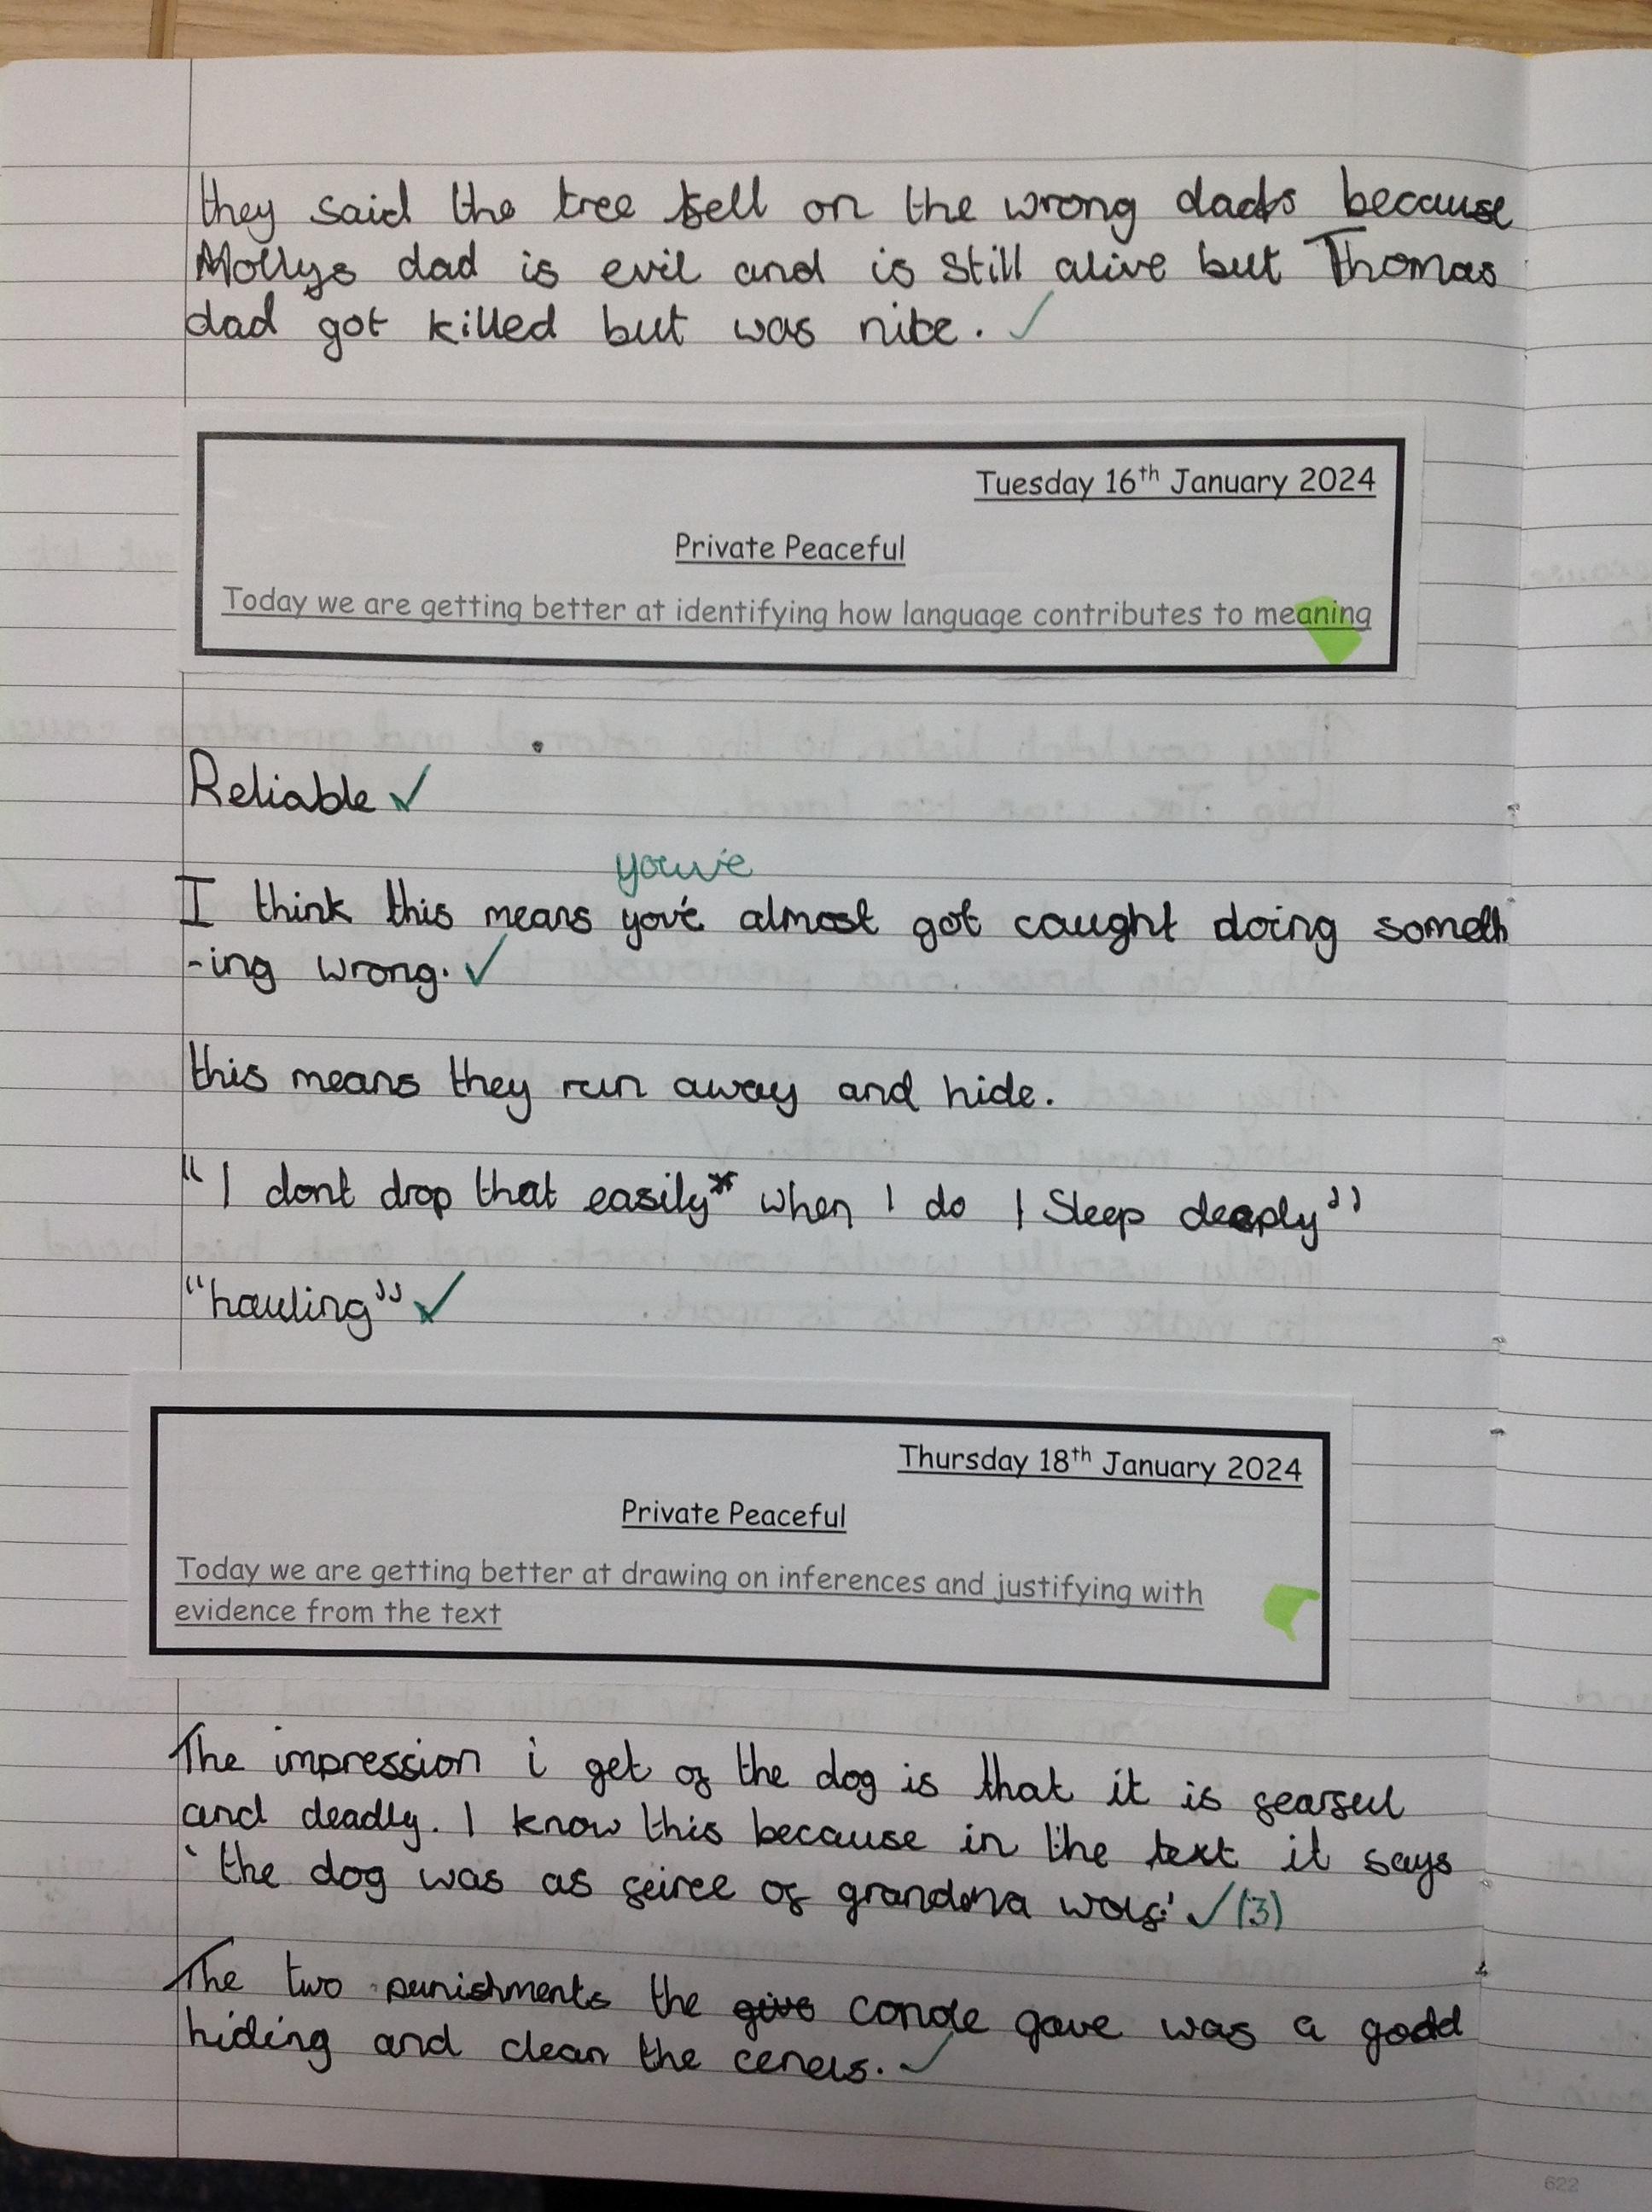 they said the tree fell on the wrong dads because
Mollys dad is evil and is still alive but Thomas
dad got killed but was nice. ✓
Tuesday 16th January 2024
Private Peaceful
Today we are getting better at identifying how language contributes to meaning
Reliable ✓
youve
I think this means yov'e almost got caught doing someth
-ing wrong. ✓
this means they run away and hide.
"I dont drop that easily* when I do I Sleep deeply"
"hauling" ✓
Thursday 18th January 2024
Private Peaceful
Today we are getting better at drawing on inferences and justifying with
evidence from the text
The impression i get of the dog is that it is fearful
and deadly. I know this because in the text it says
'the dog was as feirce of grandma wolf.' ✓ (3)
The two punishments the give conole gave was a good
hiding and clean the cenels. ✓
622